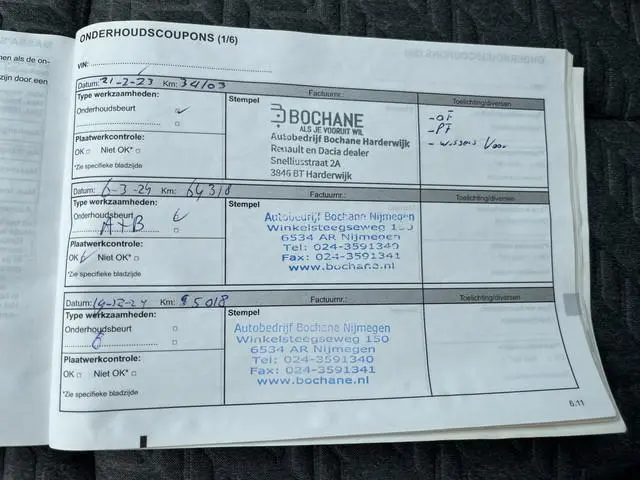 ONDERHOUDSCOUPONS (1/6)
nen als de on-
zijn door een
VIN:
Datum: 21-2-23 Km: 34103
Factuurnr.:
Toelichting/diversen
Type werkzaamheden:
Onderhoudsbeurt
Plaatwerkcontrole:
OK Niet OK*
*Zie specifieke bladzijde
Stempel
BOCHANE
ALS JE VOORUIT WIL
Autobedrijf Bochane Harderwijk
Renault en Dacia dealer
Snelliusstraat 2A
3846 BT Harderwijk
- OF
- PF
- wissers Voor
Datum: 6-3-24 Km: 64318
Factuurnr.:
Toelichting/diversen
Type werkzaamheden:
Onderhoudsbeurt
A+B
Plaatwerkcontrole:
OK Niet OK*
*Zie specifieke bladzijde
Stempel
Autobedrijf Bochane Nijmegen
Winkelsteegseweg
6534 AR Nijmegen
Tel: 024-3591340
Fax: 024-3591341
www.bochane.nl
Datum: 19-12-24 Km: 95018
Factuurnr.:
Toelichting/diversen
Type werkzaamheden:
Onderhoudsbeurt
Plaatwerkcontrole:
OK Niet OK*
*Zie specifieke bladzijde
Stempel
Autobedrijf Bochane Nijmegen
Winkelsteegseweg 150
6534 AR Nijmegen
Tel: 024-3591340
Fax: 024-3591341
www.bochane.nl
6.11